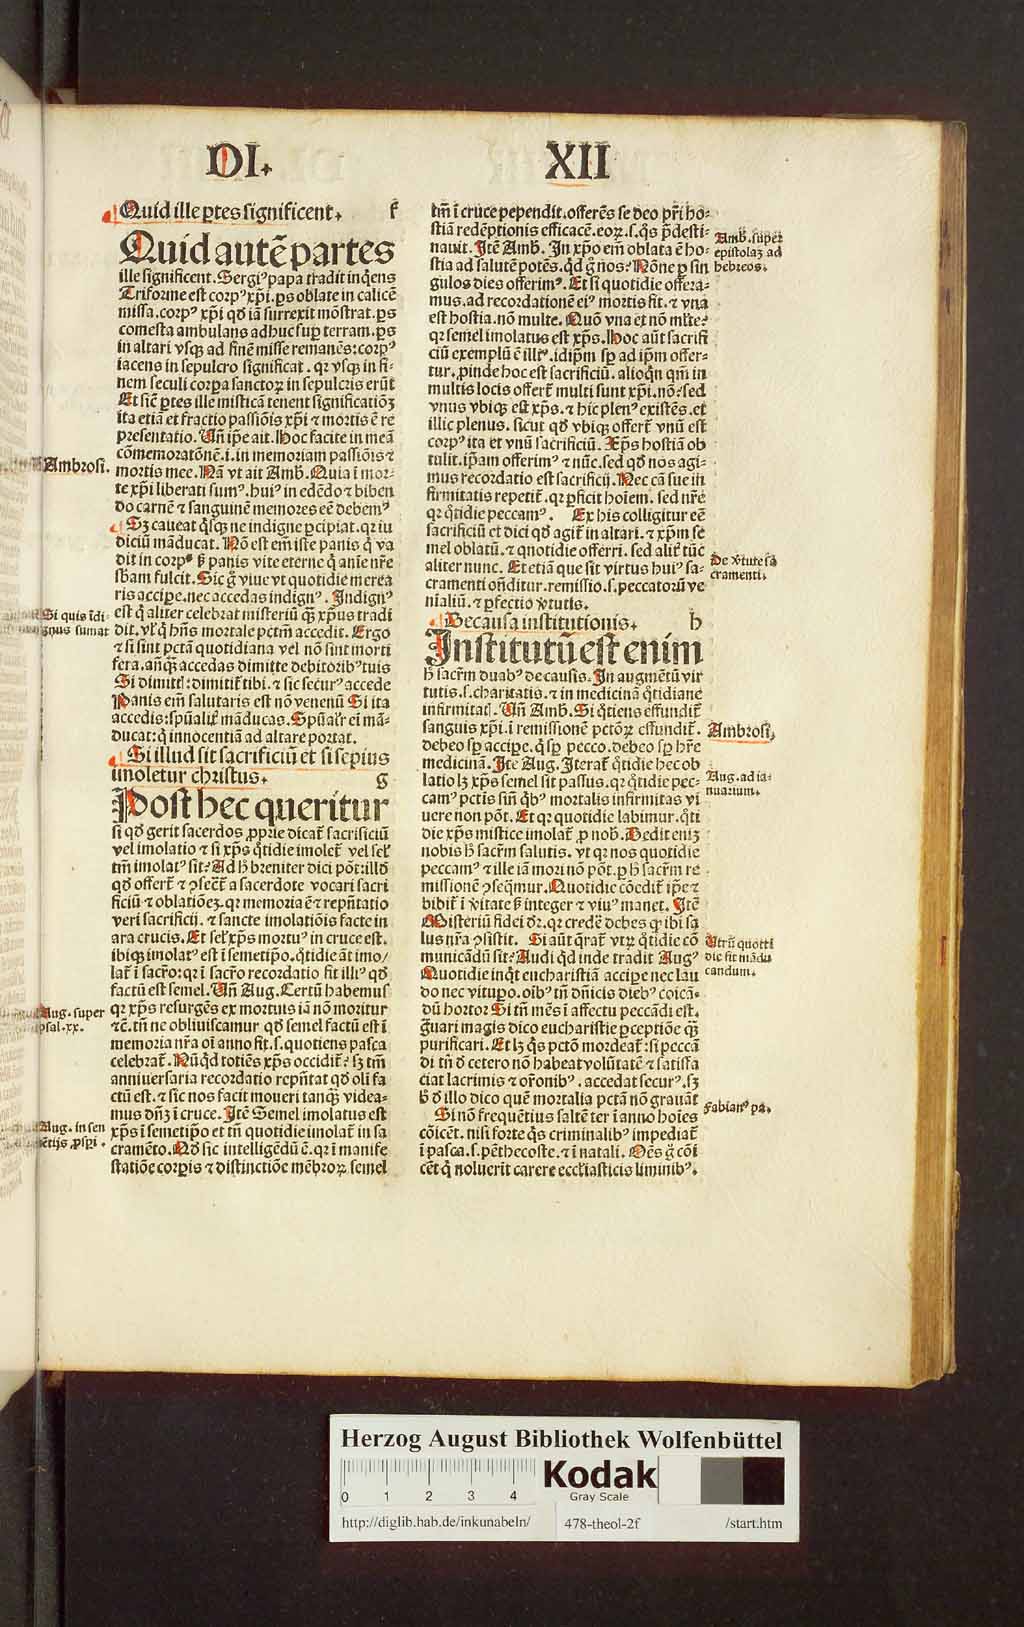 DI. XII
Quid ille ꝑtes significent. f
Quid autē partes
ille significent. Sergiꝰ papa tradit inq̇ens
Triforme est corpꝰ xp̄i. ꝑs oblate in calicē
missa. corpꝰ xp̄i qd̓ iā surrexit mōstrat. ꝑs
comesta ambulans adhuc suꝑ terram. ꝑs
in altari vsqꝫ ad finē misse remanēs: corpꝰ
iacens in sepulcro significat. qꝛ vsqꝫ in fi-
nem seculi corpa sanctoꝝ in sepulcris erūt
Et sic̄ ꝑtes ille misticā tenent significatiōꝫ
ita etiā et fractio passiōis xp̄i ⁊ mortis ē re
presentatio. Vn̄ ip̄e ait. Hoc facite in meā
cōmemoratōnē .i. in memoriam passiōis ⁊
mortis mee. Nā vt ait Amb. Quia ī mor-
te xp̄i liberati sumꝰ. huiꝰ in edēdo ⁊ biben
do carnē ⁊ sanguinē memores eē debemꝰ
Sꝫ caueat q̇sqꝫ ne indigne ꝑcipiat. qꝛ iu
diciū māducat. Nō est em̄ iste panis q̇ va
dit in corpꝰ sꝫ panis vite eterne q̇ anīe nr̄e
sb̄am fulcit. Sic ḡ viue vt quotidie merea
ris accipe. nec accedas indignꝰ. Indignꝰ
est q̇ aliter celebrat misteriū qꝫ xp̄us tradi
dit. vl̓ q̇ hn̄s mortale pctm̄ accedit. Ergo
⁊ si sint pctā quotidiana vel nō sint morti
fera. anq̄ꝫ accedas dimitte debitoribꝰ tuis
Si dimittꝭ: dimittit̄ tibi. ⁊ sic securꝰ accede
Panis em̄ salutaris est nō venenū Si ita
accedis: sp̄ualit̓ māducas. Sp̄ual̓r ei mā-
ducat: q̇ innocentiā ad altare portat.
Si illud sit sacrificiū et si sepius
imoletur christus. g
Post hec queritur
si qd̓ gerit sacerdos ꝓprie dicat̄ sacrificiū
vel imolatio ⁊ si xp̄s q̇tidie imolet̄ vel sel̓
tm̄ imolatꝰ sit? Ad h̄ breuiter dici pōt: illd̓
qd̓ offert̄ ⁊ ꝯsecrat̄ a sacerdote vocari sacri
ficiū ⁊ oblationeꝫ. qꝛ memoria ē ⁊ rep̄ntatio
veri sacrificij. ⁊ sancte imolatiōis facte in
ara crucis. Et sel̓ xp̄s mortuꝰ in cruce est.
ibiqꝫ imolatꝰ est ī semetip̄o. q̇tidie āt imo/
lat̄ ī sacr̄o: qꝛ ī sacr̄o recordatio fit illiꝰ qd̓
factū est semel. Vn̄ Aug. Certū habemus
qꝛ xp̄s resurgēs ex mortuis iā nō moritur
⁊c̄. tn̄ ne obliuiscamur qd̓ semel factū est ī
memoria nr̄a oī anno fit .s. quotiens pasca
celebrat̄. Nūqd̓ totiēs xp̄s occidit̄? sꝫ tm̄
anniuersaria recordatio rep̄ntat qd̓ olī fa
ctū est. ⁊ sic nos facit moueri tanqꝫ videa-
mus dn̄ꝫ ī cruce. Itē Semel imolatus est
xp̄s ī semetip̄o et tn̄ quotidie imolat̄ in sa
cramēto. Qd̓ sic intelligēdū ē. qꝛ ī manife
statiōe corꝑis ⁊ distinctiōe mēbroꝝ semel
tm̄ ī cruce pependit. offerēs se deo pr̄i ho-
stiā redēptionis efficacē. eoꝝ .s. q̇s p̄desti-
nauit. Itē Amb. In xp̄o em̄ oblata ē ho-
stia ad salutē potēs. qd̓ ḡ nos? Nōne ꝑ sin
gulos dies offerimꝰ. Et si quotidie offera-
mus. ad recordationē eiꝰ mortis fit. ⁊ vna
est hostia. nō multe. Quō vna et nō ml̓te?
qꝛ semel imolatus est xp̄s. Hoc aūt sacrifi
ciū exemplū ē illiꝰ. idip̄m sꝑ ad ip̄m offer-
tur. ꝓinde hoc est sacrificiū. alioq̇n qm̄ in
multis locis offert̄ multi sunt xp̄i. nō? sed
vnus vbiqꝫ est xp̄s. ⁊ hic plenꝰ existēs. et
illic plenus. sicut qd̓ vbiqꝫ offert̄ vnū est
corpꝰ ita et vnū sacrificiū. Xp̄s hostiā ob
tulit. ip̄am offerimꝰ ⁊ nūc. sed qd̓ nos agi-
mus recordatio est sacrificij. Nec cā sue in
firmitatis repetit̄. qꝛ ꝑficit hoīem. sed nr̄e
qꝛ q̇tidie peccamꝰ. Ex his colligitur eē
sacrificiū et dici qd̓ agit̄ in altari. ⁊ xp̄m se
mel oblatū. ⁊ quotidie offerri. sed alit̓ tūc
aliter nunc. Et etiā que sit virtus huiꝰ sa-
cramenti on̄ditur. remissio .s. peccatorū ve
nialiū. ⁊ ꝑfectio v̓tutis.
De causa institutionis. h
Institutū est enim
h̄ sacr̄m duabꝰ de causis. In augmētū vir
tutis .s. charitatis. ⁊ in medicinā q̇tidiane
infirmitatꝭ. Vn̄ Amb. Si q̇tiens effundit̄
sanguis xp̄i. ī remissionē pctōꝝ effundit̄.
debeo sꝑ accipe. q̇ sꝑ pecco. debeo sꝑ h̄re
medicinā. Itē Aug. Iterat̄ q̇tidie hec ob
latio lꝫ xp̄s semel sit passus. qꝛ q̇tidie pec-
camꝰ pctīs sin̄ q̇bꝰ mortalis infirmitas vi
uere non pōt. Et qꝛ quotidie labimur. q̇ti
die xp̄s mistice imolat̄ ꝓ nob̓. Dedit eniꝫ
nobis h̄ sacr̄m salutis. vt qꝛ nos quotidie
peccamꝰ ⁊ ille iā mori nō pōt. ꝑ h̄ sacr̄m re
missionē ꝯseq̄mur. Quotidie cōedit̄ ip̄e ⁊
bibit̄ ī v̓itate sꝫ integer ⁊ viuꝰ manet. Itē
Misteriū fidei dr̄. qꝛ credē debes qꝛ ibi sa
lus nr̄a ꝯsistit. Si aūt q̄rat̄ vtꝝ q̇tidie cō
municādū sit? Audi qd̓ inde tradit Augꝰ
Quotidie inq̇t eucharistiā accipe nec lau
do nec vitupo. oībꝰ tn̄ dn̄icis diebꝰ coicā-
dū hortor Si tn̄ mēs ī affectu peccādi est.
g̓uari magis dico eucharistie ꝑceptiōe qꝫ
purificari. Et lꝫ q̇s pctō mordeat̄: si peccā
di tn̄ d̓ cetero nō habeat volūtatē ⁊ satisfa
ciat lacrimis ⁊ or̄onibꝰ. accedat securꝰ. sꝫ
h̄ d̓ illo dico quē mortalia pctā nō grauāt
Si nō frequētius saltē ter ī anno hoīes
cōicēt. nisi forte q̇s criminalibꝰ impediat̄
ī pasca .s. pēthecoste. ⁊ ī natali. Oēs ḡ cōi
cēt q̇ noluerīt carere eccl̓iasticis liminibꝰ.
Ambrosi.
Si quis īdi-
gnus sumat
Aug. super
psal. xx.
Aug. in sen
tētijs ꝓspi.
Amb. super
epistolaꝫ ad
hebreos.
De v̓tute sa
cramenti.
Ambrosi.
Aug. ad ia-
nuarium.
Vtrū quoti
die sit mādu
candum.
Fabianꝰ pa.
Herzog August Bibliothek Wolfenbüttel
0 1 2 3 4
Kodak
Gray Scale
http://diglib.hab.de/inkunabeln/ 478-theol-2f /start.htm